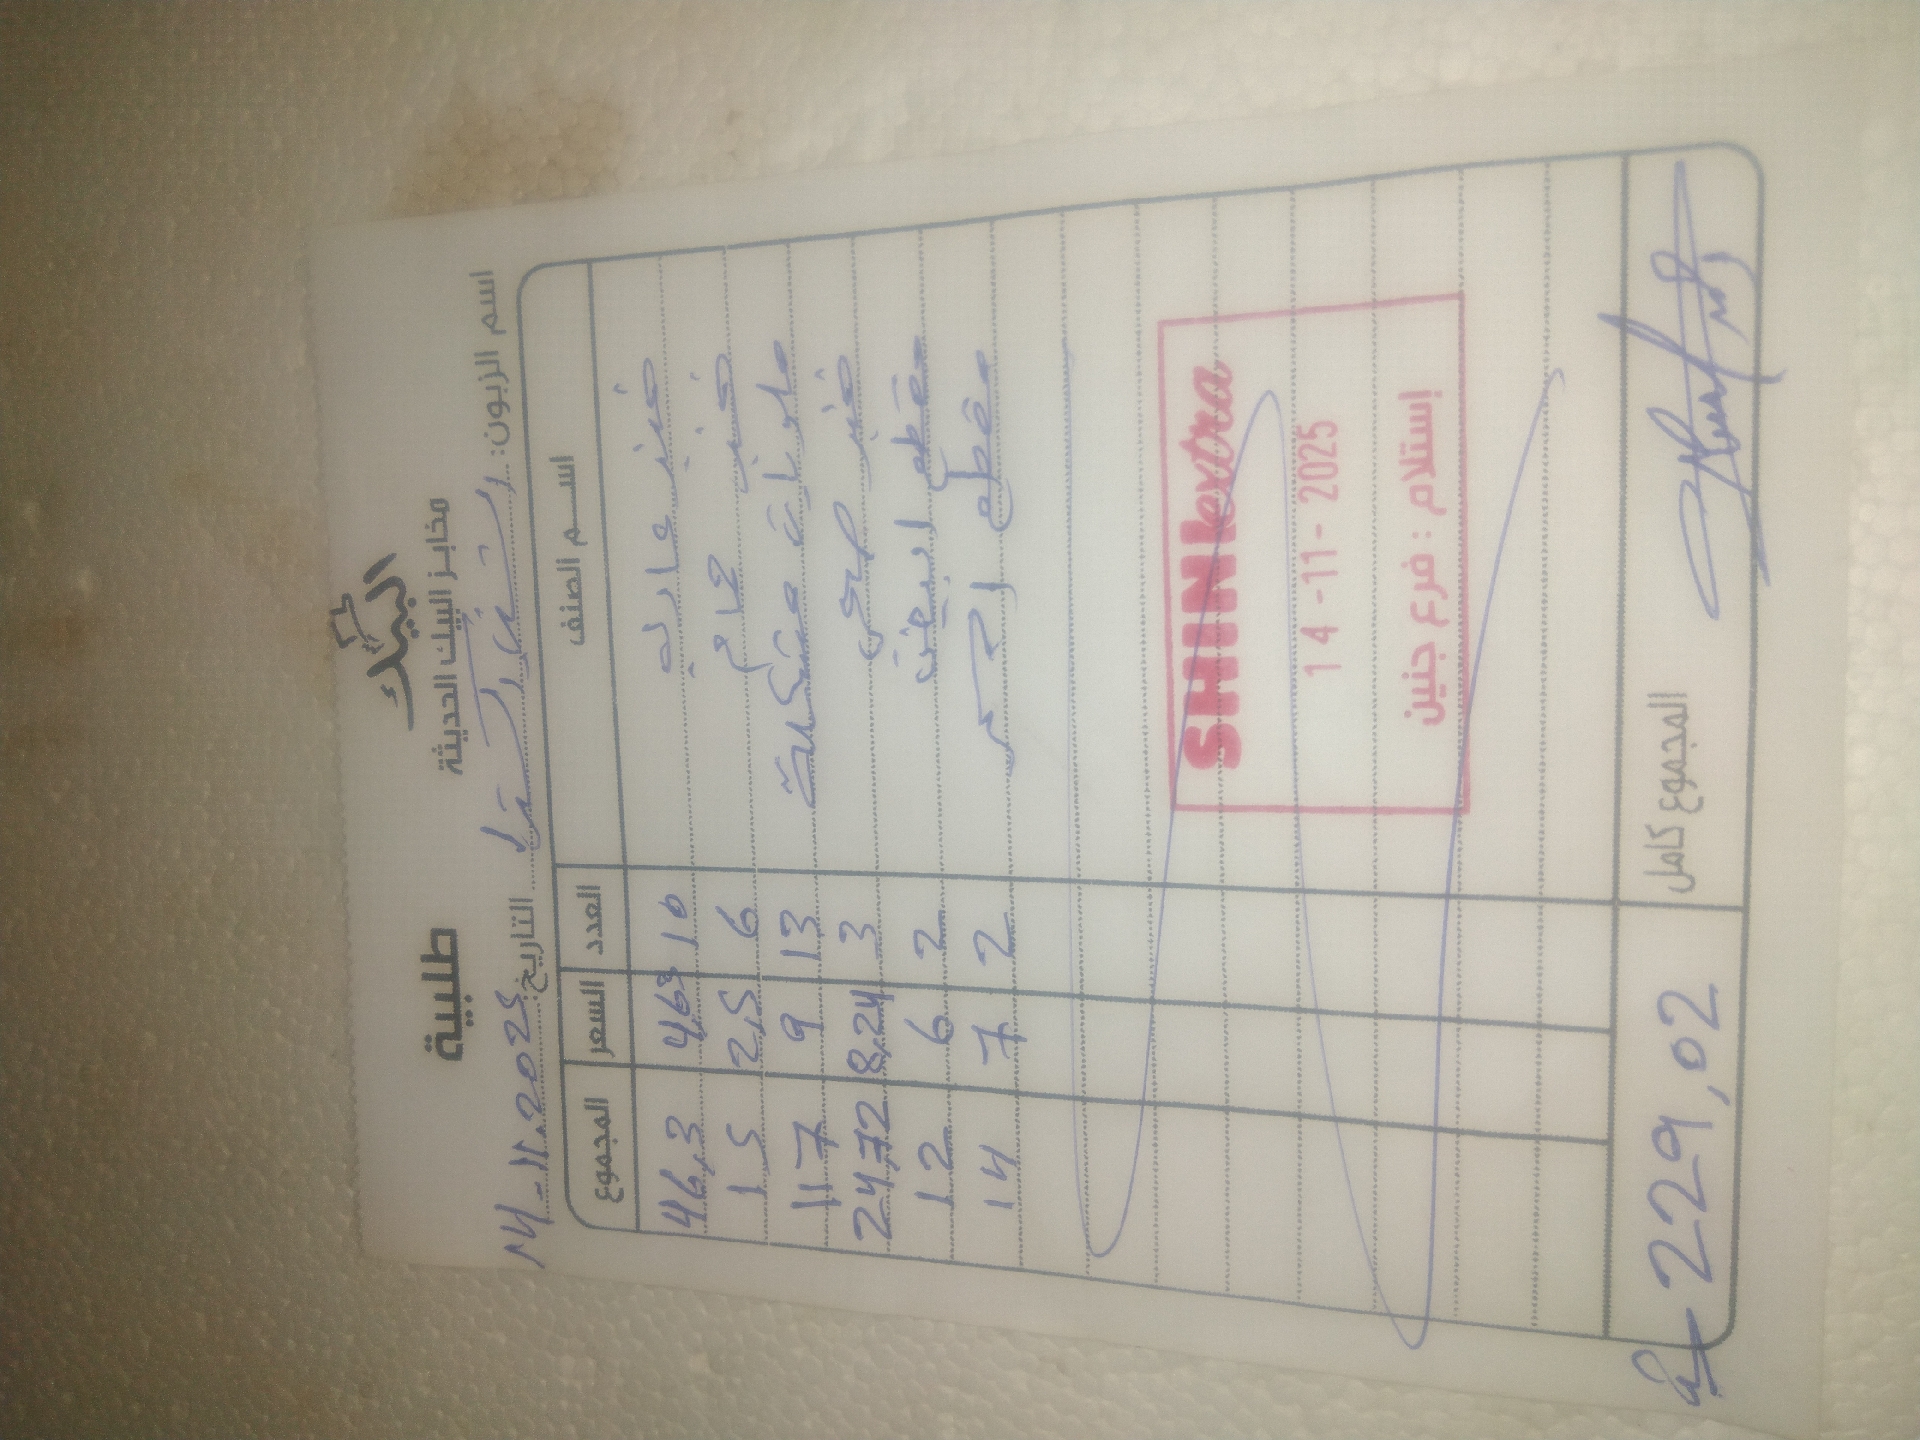 البيك
مخابز البيك الحديثة
طلبية
اسم الزبون: شني اكسترا
التاريخ: 14-11-2025
اسم الصنف العدد السعر المجموع
خبز عادي 10 4,63 46,3
خبز حمام 6 2,5 15
حلويات مشكلة 13 9 117
خبز 3 8,24 24,72
مقطع ابيض 2 6 12
مقطع اسمر 2 7 14
SHINI extra
14-11-2025
إستلام : فرع جنين
المجموع كامل 229,02